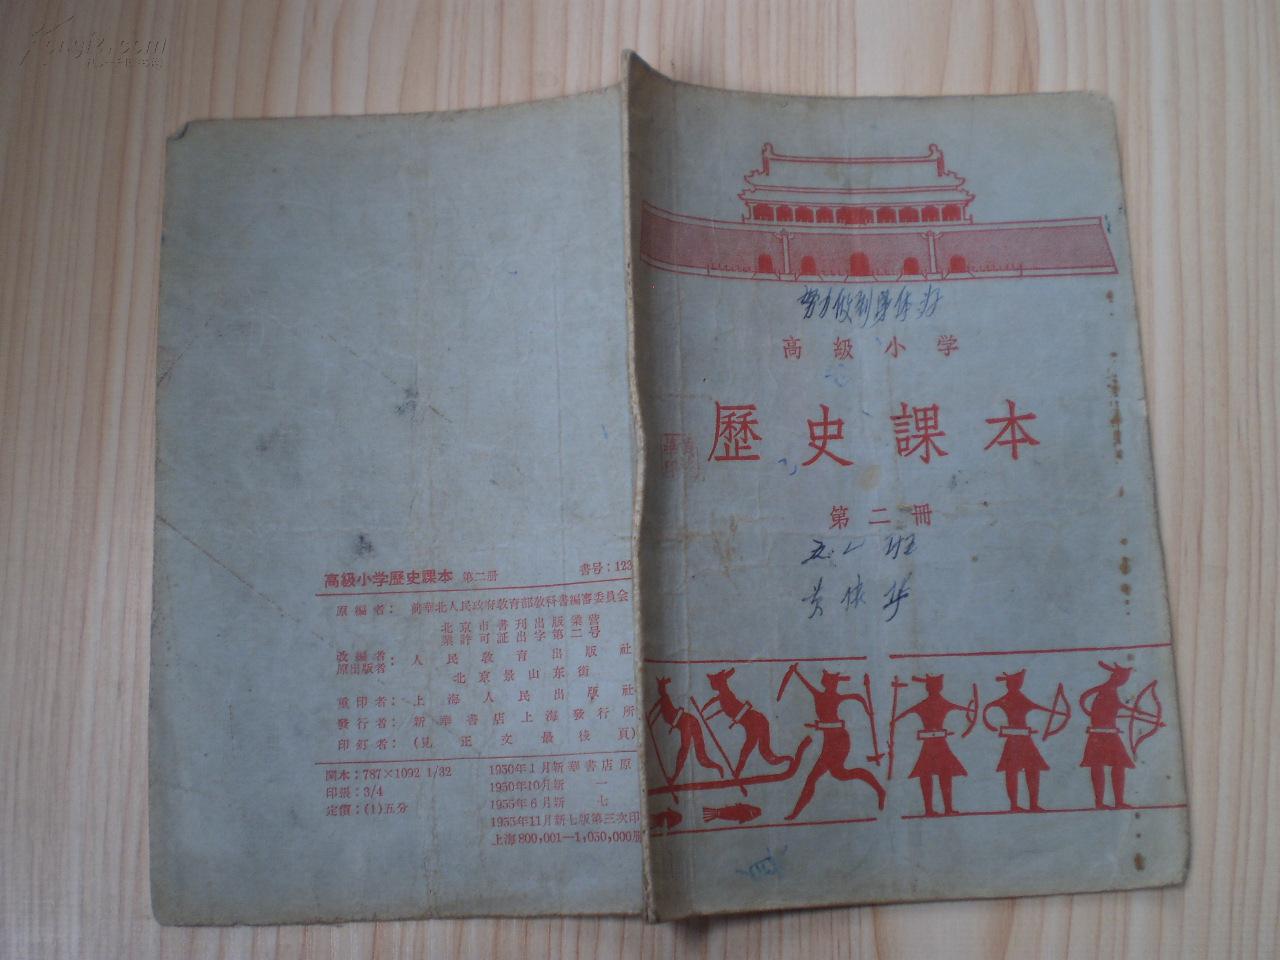 努力做到身体好
高級小学
歷史課本
第二冊
五.一班
黄依华
高級小学歷史課本 第二册 書号：123
原編者：前華北人民政府敎育部敎科書編審委員会
北京市書刊出版業营
業許可証出字第二号
改編者
原出版者：人民敎育出版社
北京景山东街
重印者：上海人民出版社
發行者：新華書店上海發行所
印釘者：（見正文最後頁）
開本：787×1092 1/32
印張：3/4
定價：(1)五分
1950年1月新華書店原
1950年10月新一
1955年6月新七
1955年11月新七版第三次印
上海800,001—1,050,000册